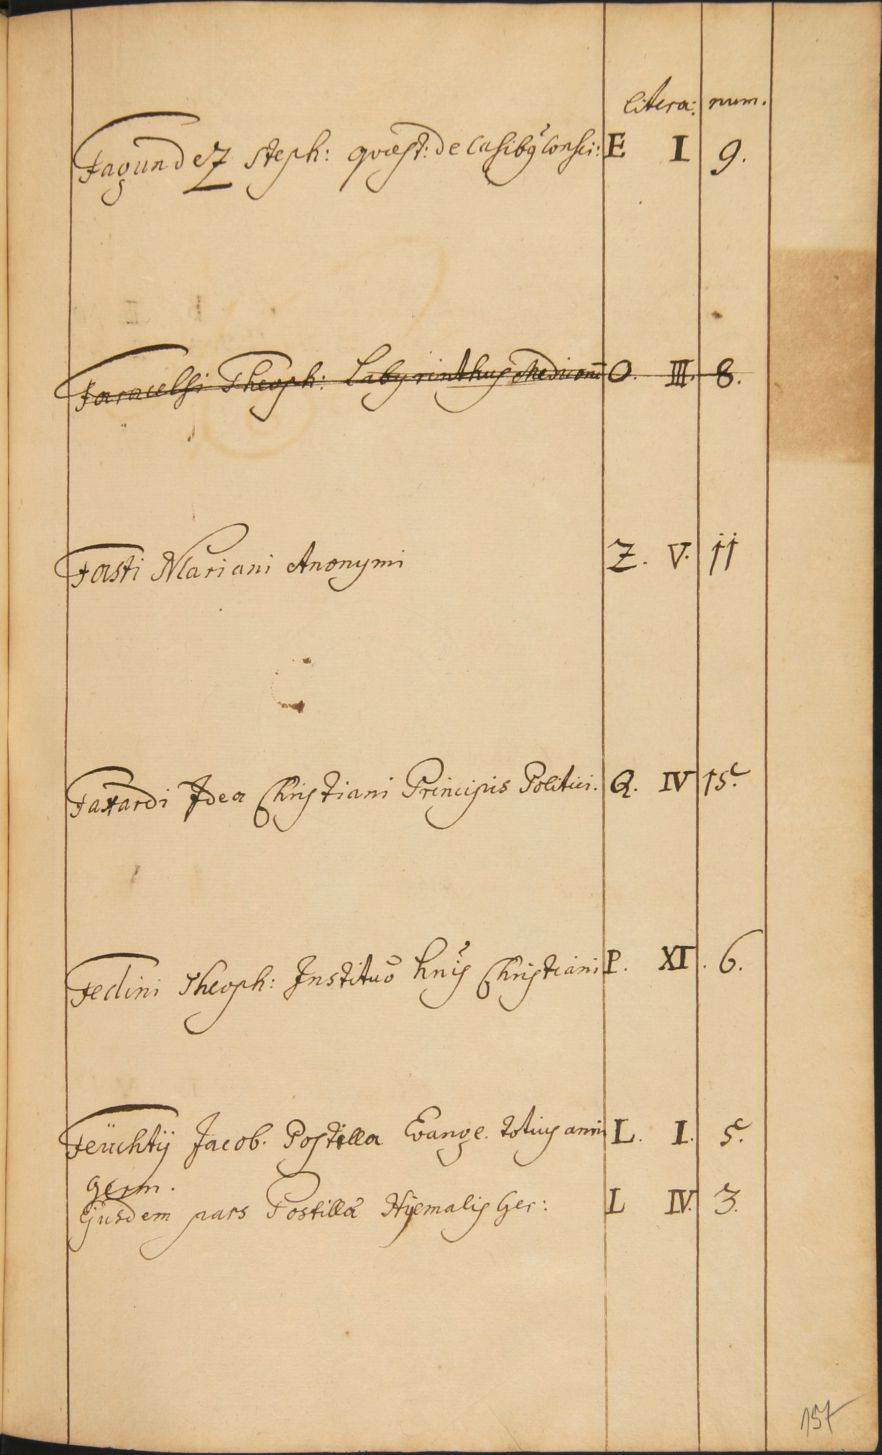 litera: num.
Fagundez Steph: quæst: de Casibq Consci: E I 9.
Faracelsi Theoph: Labyrinthus Medicorū O. III. 8.
Fasti Mariani Anonymi Z. V. 11
Faxardi Idea Christiani Principis Politici. Q. IV 15.
Fedini Theoph: Christiani P. XI. 6.
Feüchtij Jacob. Postilla Evange. totius anni L. I. 5.
germ.
Ejusdem pars Postillæ Hyemalis Ger: L IV. 3.
157